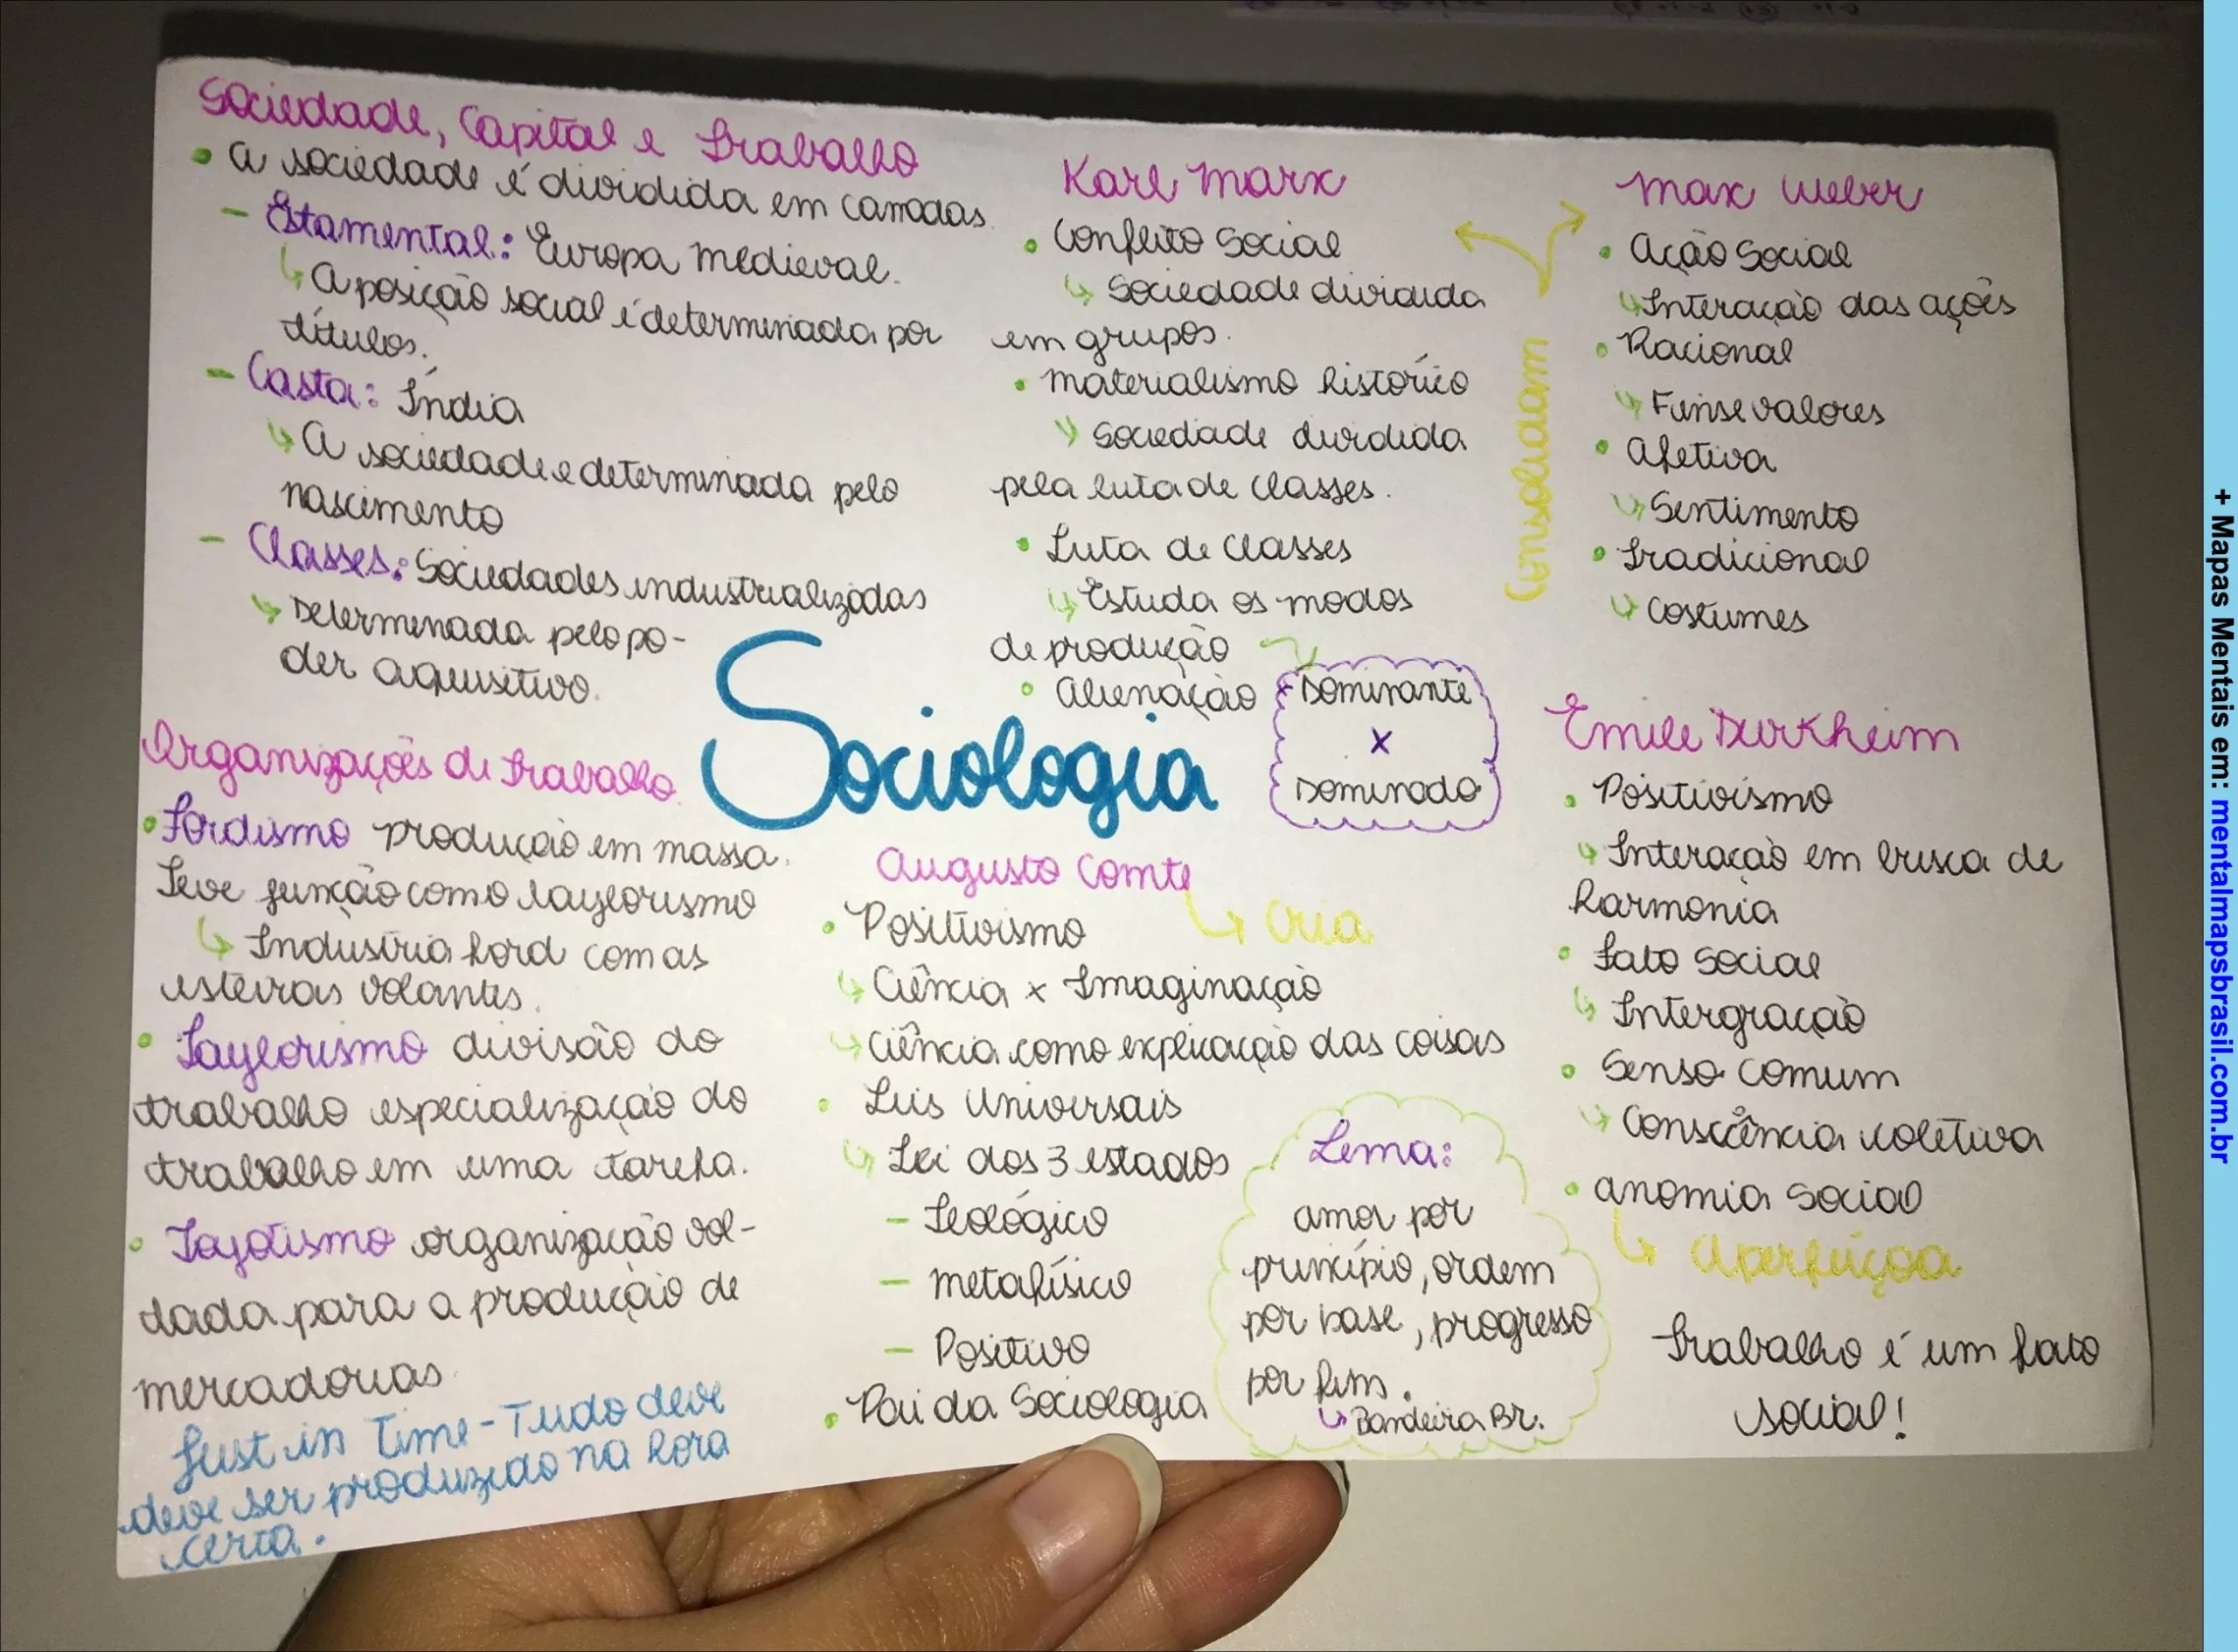 Sociedade, Capital e Trabalho
• A sociedade é dividida em camadas.
- Estamental: Europa Medieval.
↳ A posição social é determinada por
títulos.
- Casta: Índia
↳ A sociedade e determinada pelo
nascimento
- Classes: Sociedades industrializadas
↳ Determinada pelo po-
der aquisitivo.
Organizações de Trabalho
• Fordismo produção em massa.
Teve junção como taylorismo
↳ Industria Ford com as
esteiras volantes.
• Taylorismo divisão do
trabalho especialização do
trabalho em uma tarefa.
• Toyotismo organização vol-
tada para a produção de
mercadorias
Just in Time - Tudo deve
deve ser produzido na hora
certa.
Sociologia
Karl Marx
• Conflito Social
↳ Sociedade dividida
em grupos.
• Materialismo histórico
↳ Sociedade dividida
pela luta de classes.
• Luta de classes
↳ Estuda os modos
de produção
• Alienação
Dominante
x
Dominado
Consolidam
Max Weber
• Ação Social
↳ Interação das ações
• Racional
↳ Fins e valores
• Afetiva
↳ Sentimento
• Tradicional
↳ Costumes
Augusto Comte
↳ Cria
• Positivismo
↳ Ciência x Imaginação
↳ Ciência como explicação das coisas
• Leis Universais
↳ Lei dos 3 estados
- Teológico
- Metafísico
- Positivo
• Pai da Sociologia
Lema:
amor por
princípio, ordem
por base, progresso
por fim.
↳ Bandeira Br.
Emile Durkheim
• Positivismo
↳ Interação em busca de
harmonia
• Fato Social
↳ Intergração
• Senso comum
↳ Consciência coletiva
• Anomia Social
↳ Aperfeiçoa
Trabalho é um fato
social!
+ Mapas Mentais em: mentalmapsbrasil.com.br